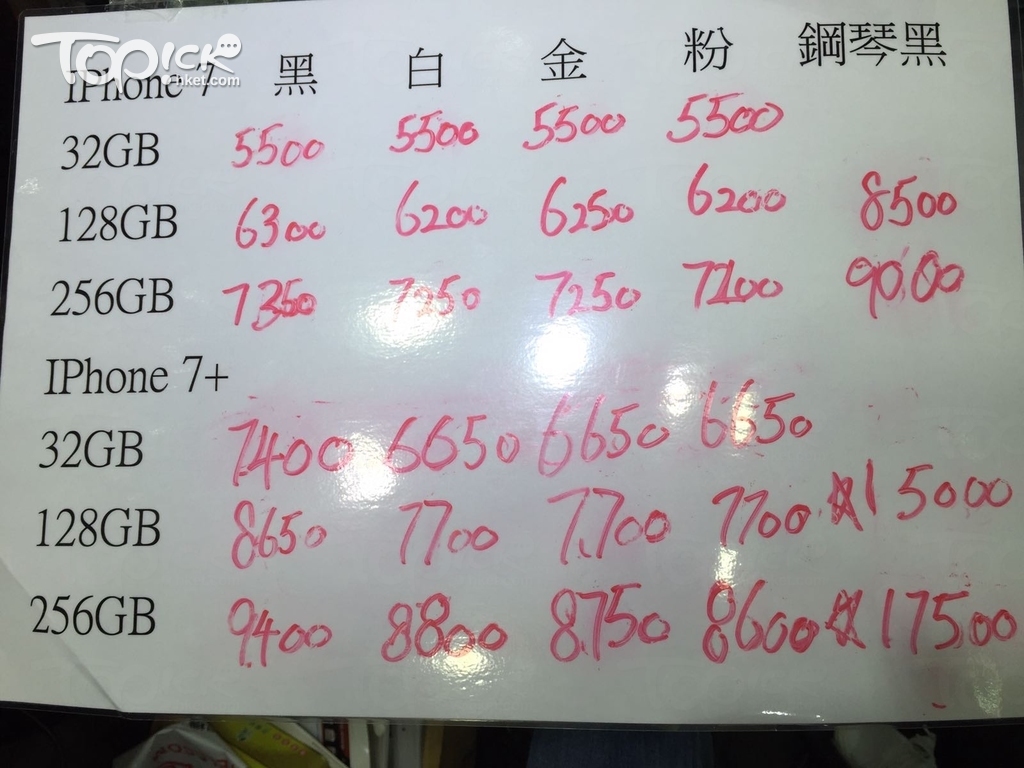 TOPick
hket.com
IPhone 7 黑 白 金 粉 鋼琴黑
32GB 5500 5500 5500 5500
128GB 6300 6200 6250 6200 8500
256GB 7350 7250 7250 7200 9000
IPhone 7+
32GB 7400 6650 6650 6650
128GB 8650 7700 7700 7700 15000
256GB 9400 8800 8750 8600 17500